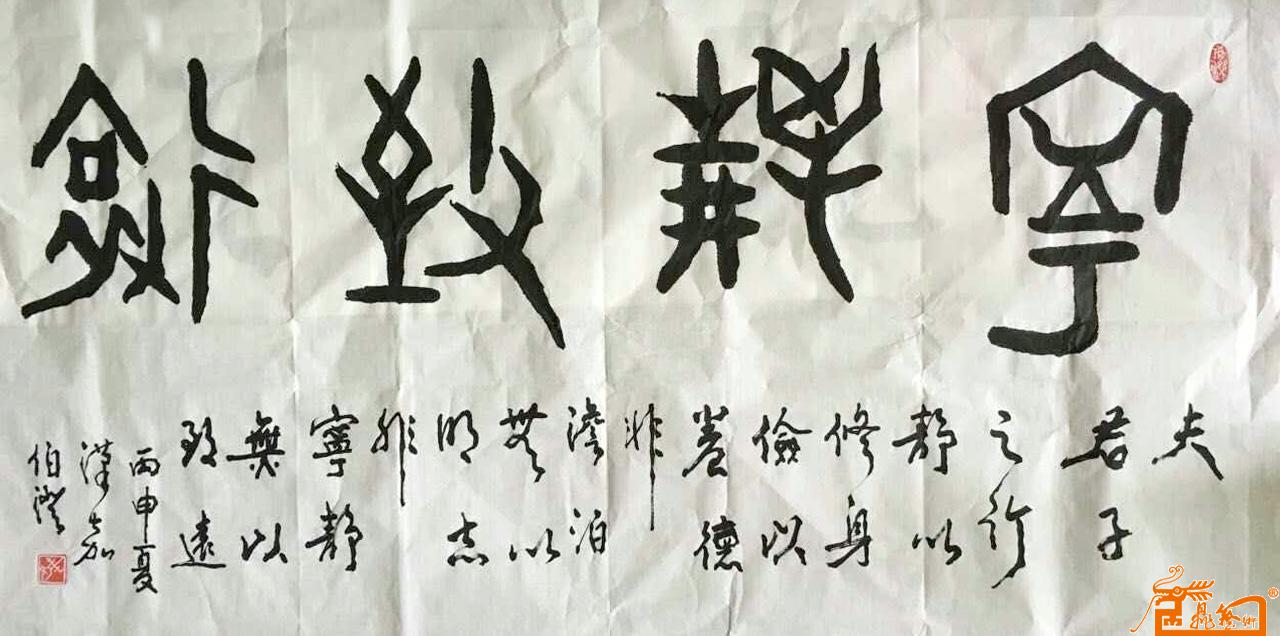 寧靜致遠
夫
君子
之行
靜以
修身
儉以
養德
非
澹泊
無以
明志
非
寧靜
無以
致遠
丙申夏
漢嘉
伯